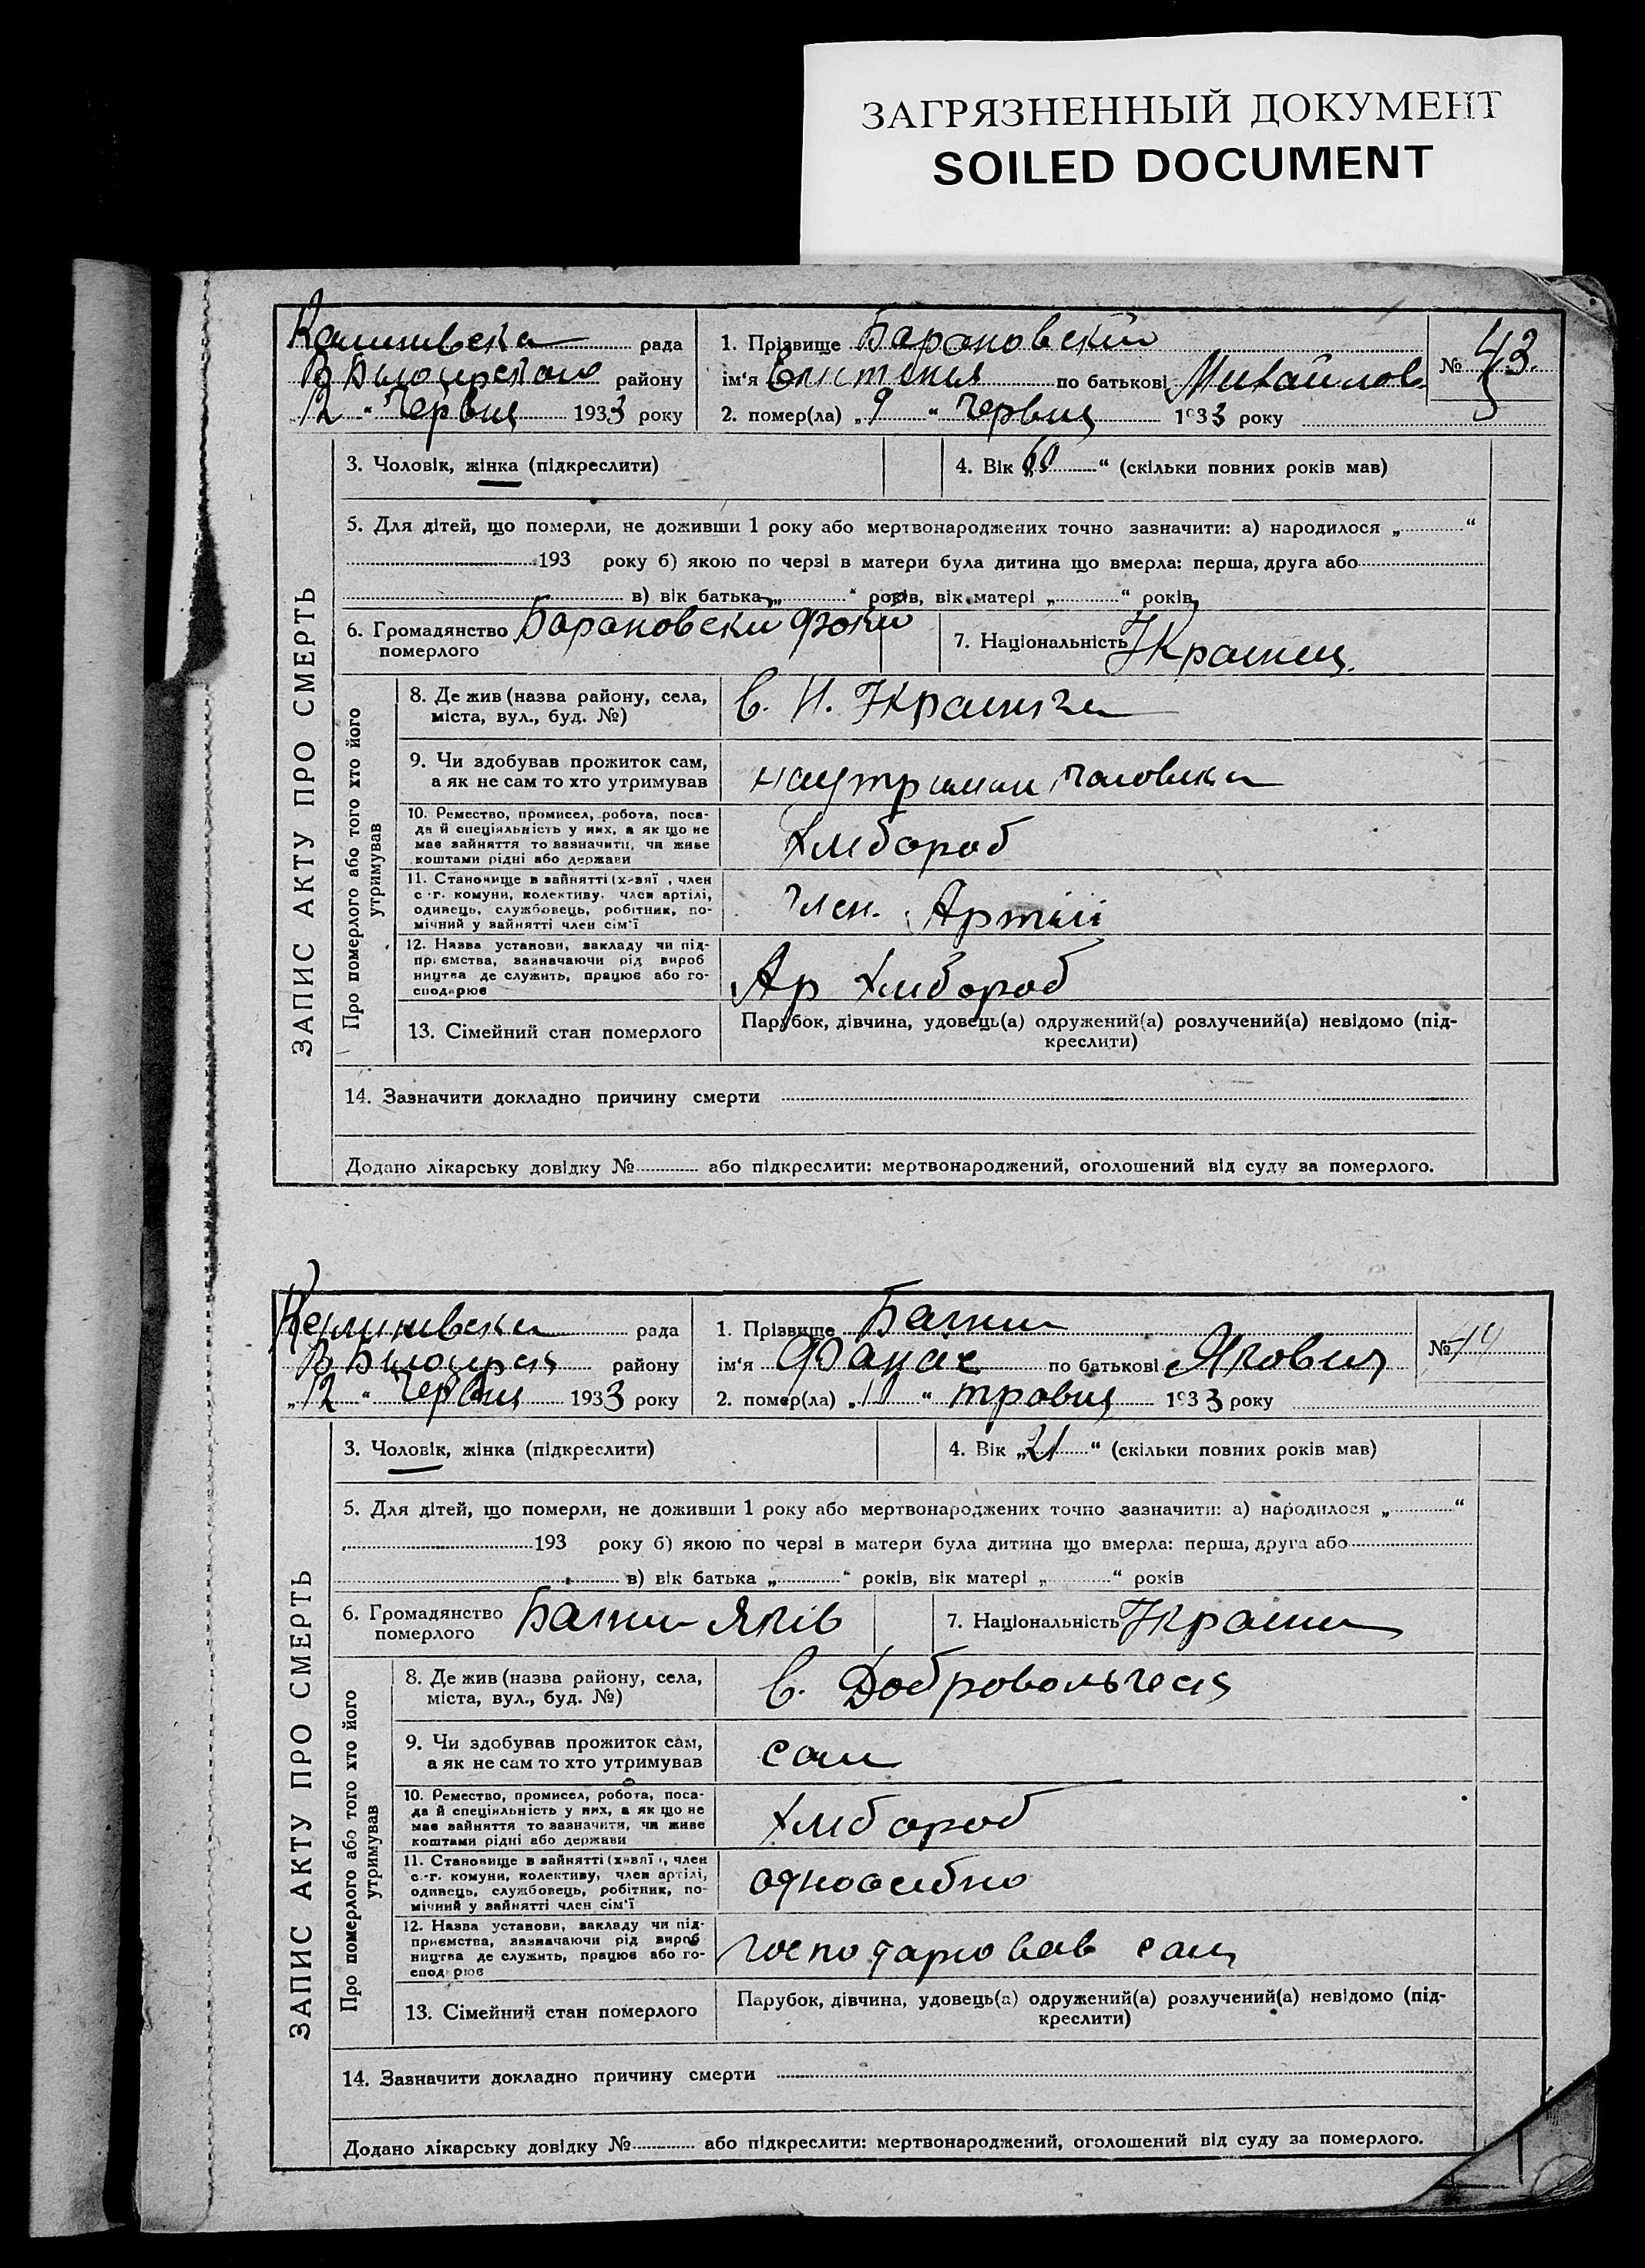 ЗАГРЯЗНЕННЫЙ ДОКУМЕНТ
SOILED DOCUMENT
рада
району
12 " Червця 1933 року
1. Прізвище Барановский
ім'я по батькові Михайлов
2. помер(ла) „ 9 " Червця 1933 року
№ 43.
ЗАПИС АКТУ ПРО СМЕРТЬ
3. Чоловік, жінка (підкреслити)
4. Вік „ 60 " (скільки повних років мав)
5. Для дітей, що померли, не доживши 1 року або мертвонароджених точно зазначити: а) народилося „ "
193 року б) якою по черзі в матери була дитина що вмерла: перша, друга або
в) вік батька „ " років, вік матері „ " років
6. Громадянство померлого Барановски Фоки
7. Національність
Про померлого або того хто його утримував
8. Де жив (назва району, села,
міста, вул., буд. №)
9. Чи здобував прожиток сам,
а як не сам то хто утримував
10. Ремество, промисел, робота, поса-
да й спеціяльність у них, а як що не
має зайняття то зазначити, чи живе
коштами рідні або держави
Хлібороб
11. Становище в зайнятті (х-вяї, член
с.-г. комуни, колективу, член артілі,
одинець, службовець, робітник, по-
мічний у зайнятті член сім'ї
член. Артілі
12. Назва установи, закладу чи під-
приємства, зазначаючи рід вироб
ництва де служить, працює або го-
сподарює
Ар Хлібороб
13. Сімейний стан померлого
Парубок, дівчина, удовець(а) одружений(а) розлучений(а) невідомо (під-
креслити)
14. Зазначити докладно причину смерти
Додано лікарську довідку № або підкреслити: мертвонароджений, оголошений від суду за померлого.
рада
району
„ 12 " Червця 1933 року
1. Прізвище
ім'я Фанас по батькові Якович
2. помер(ла) „ " травця 1933 року
№ 44
ЗАПИС АКТУ ПРО СМЕРТЬ
3. Чоловік, жінка (підкреслити)
4. Вік „ 21 " (скільки повних років мав)
5. Для дітей, що померли, не доживши 1 року або мертвонароджених точно зазначити: а) народилося „ "
193 року б) якою по черзі в матери була дитина що вмерла: перша, друга або
в) вік батька „ " років, вік матері „ " років
6. Громадянство померлого Яків
7. Національність
Про померлого або того хто його утримував
8. Де жив (назва району, села,
міста, вул., буд. №)
9. Чи здобував прожиток сам,
а як не сам то хто утримував
сам
10. Ремество, промисел, робота, поса-
да й спеціяльність у них, а як що не
має зайняття то зазначити, чи живе
коштами рідні або держави
Хлібороб
11. Становище в зайнятті (х-вяї, член
с.-г. комуни, колективу, член артілі,
одинець, службовець, робітник, по-
мічний у зайнятті член сім'ї
одноосібно
12. Назва установи, закладу чи під-
приємства, зазначаючи рід вироб
ництва де служить, працює або го-
сподарює
господарював сам
13. Сімейний стан померлого
Парубок, дівчина, удовець(а) одружений(а) розлучений(а) невідомо (під-
креслити)
14. Зазначити докладно причину смерти
Додано лікарську довідку № або підкреслити: мертвонароджений, оголошений від суду за померлого.